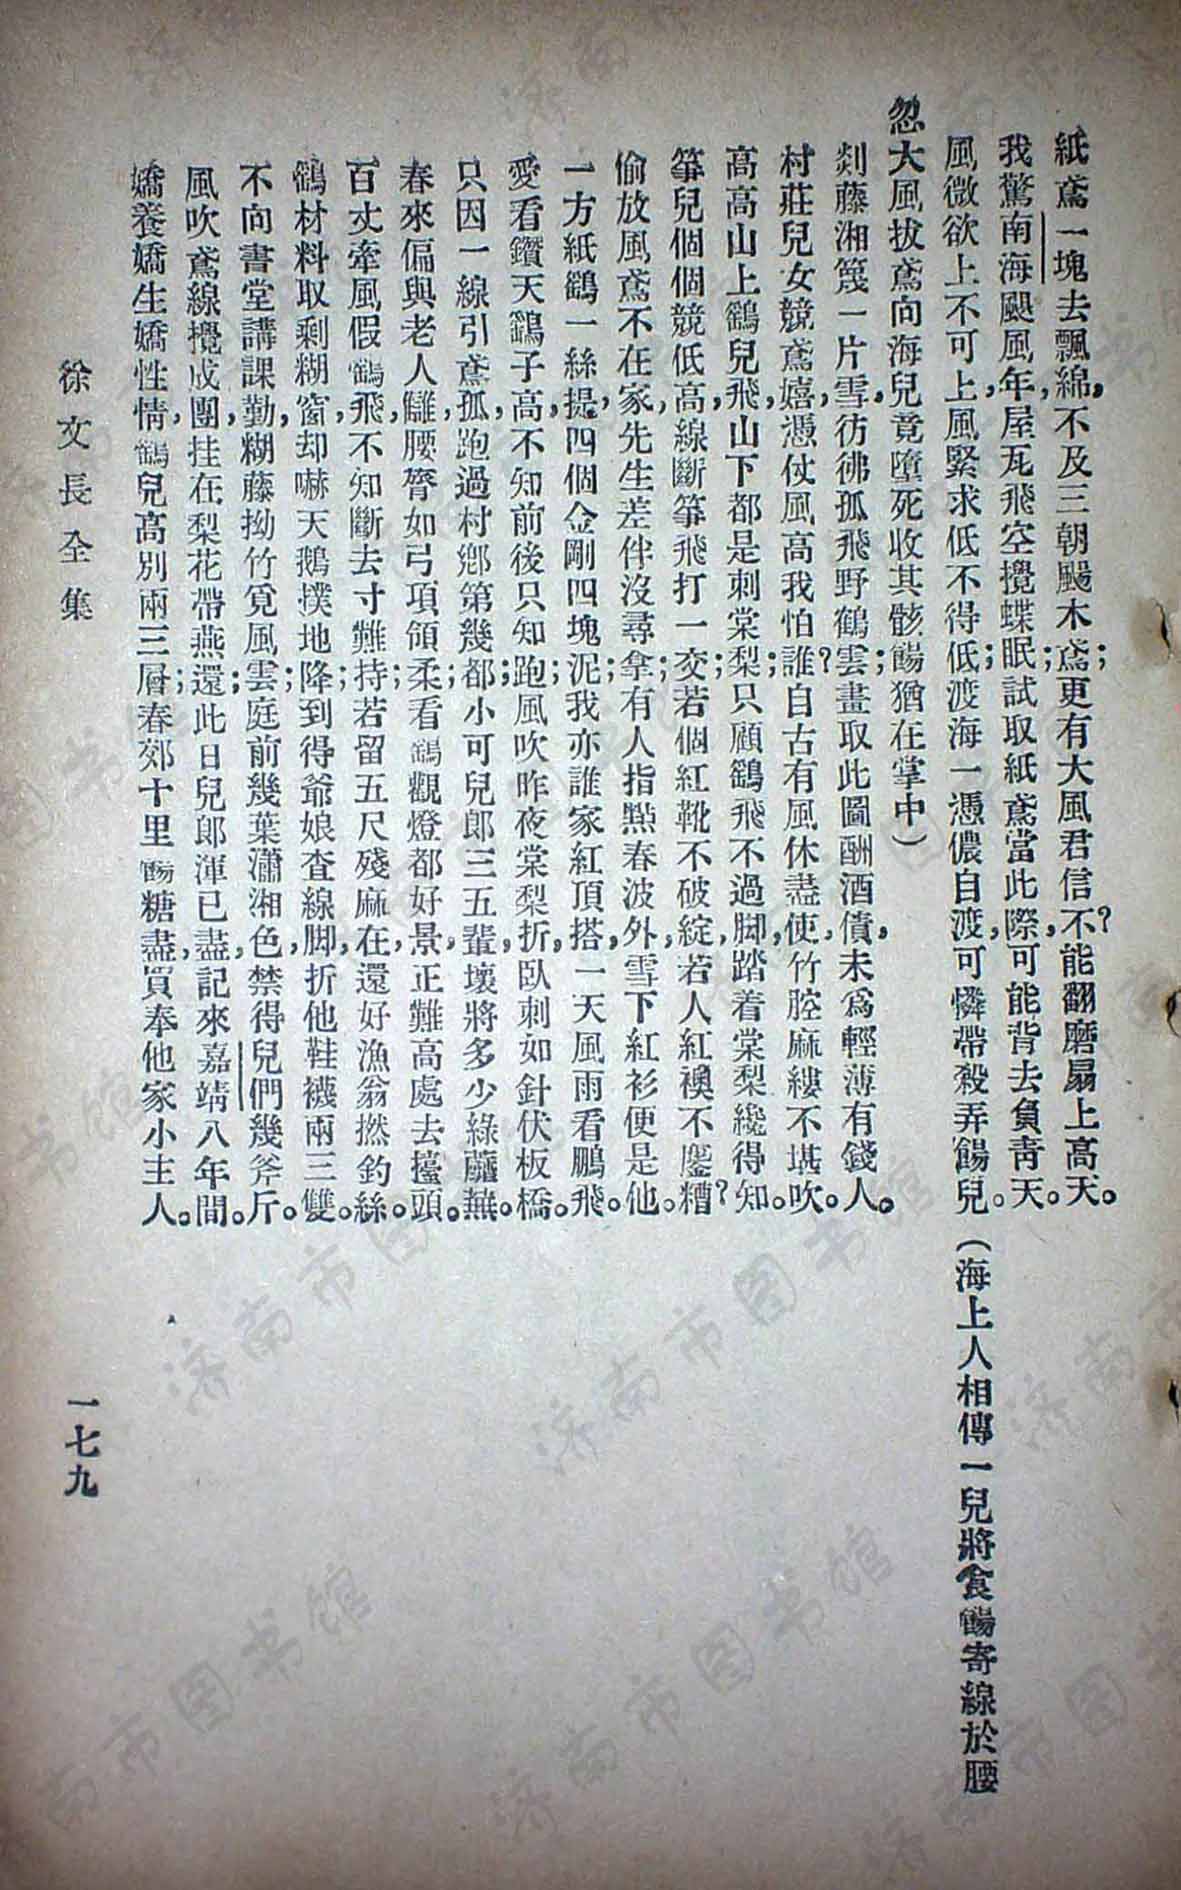 紙鳶一塊去飄綿，不及三朝颺木鳶；更有大風君信不？能翻磨扇上高天。
我驚南海颶風年，屋瓦飛空攪蝶眠；試取紙鳶當此際，可能背去負青天。
風微欲上不可上，風緊求低不得低；渡海一憑儂自渡，可憐帶殺弄餳兒。（海上人相傳一兒將食餳寄線於腰
忽大風拔鳶向海兒竟墮死收其骸餳猶在掌中）
剡藤湘篾一片雪，彷彿孤飛野鶴雲；畫取此圖酬酒債，未爲輕薄有錢人。
村莊兒女競鳶嬉，憑仗風高我怕誰？自古有風休盡使，竹腔麻縷不堪吹。
高高山上鷂兒飛，山下都是刺棠梨；只顧鷂飛不過脚，踏着棠梨纔得知。
箏兒個個競低高，線斷箏飛打一交；若個紅靴不破綻，若人紅襖不鏖糟？
偷放風鳶不在家，先生差伴沒尋拿；有人指點春波外，雪下紅衫便是他。
一方紙鷂一絲提，四個金剛四塊泥；我亦誰家紅頂搭，一天風雨看鵬飛。
愛看鑽天鷂子高，不知前後只知跑；風吹昨夜棠梨折，臥刺如針伏板橋。
只因一線引鳶孤，跑過村鄉第幾都；小可兒郎三五輩，壞將多少綠蘼蕪。
春來偏與老人讎，腰膂如弓項領柔；看鷂觀燈都好景，正難高處去擡頭。
百丈牽風假鷂飛，不知斷去寸難持；若留五尺殘麻在，還好漁翁撚釣絲。
鷂材料取剩糊窗，却嚇天鵝撲地降；到得爺娘查線脚，折他鞋襪兩三雙。
不向書堂講課勤，糊藤拗竹覓風雲；庭前幾葉瀟湘色，禁得兒們幾斧斤。
風吹鳶線攪成團，挂在梨花帶燕還；此日兒郎渾已盡，記來嘉靖八年間。
嬌養嬌生嬌性情，鷂兒高別兩三層；春郊十里餳糖盡，買奉他家小主人。
徐文長全集
一七九
济南市图书馆